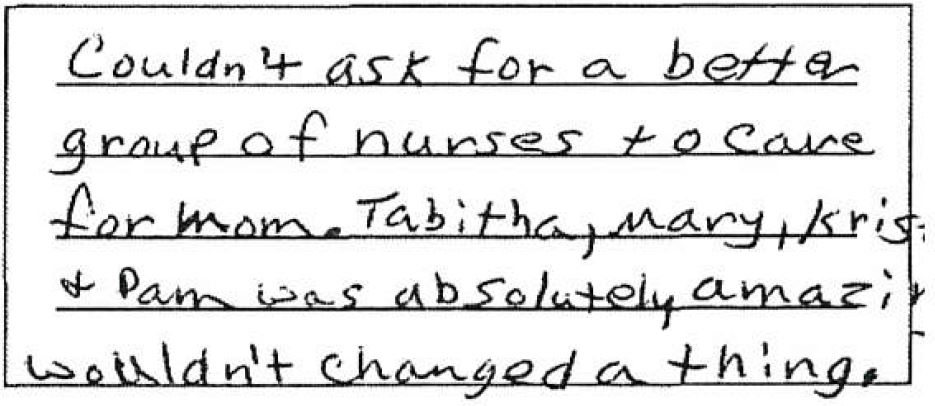 Couldn't ask for a better
group of nurses to care
for mom. Tabitha, Mary, Kris
& Pam was absolutely amazi
wouldn't changed a thing.